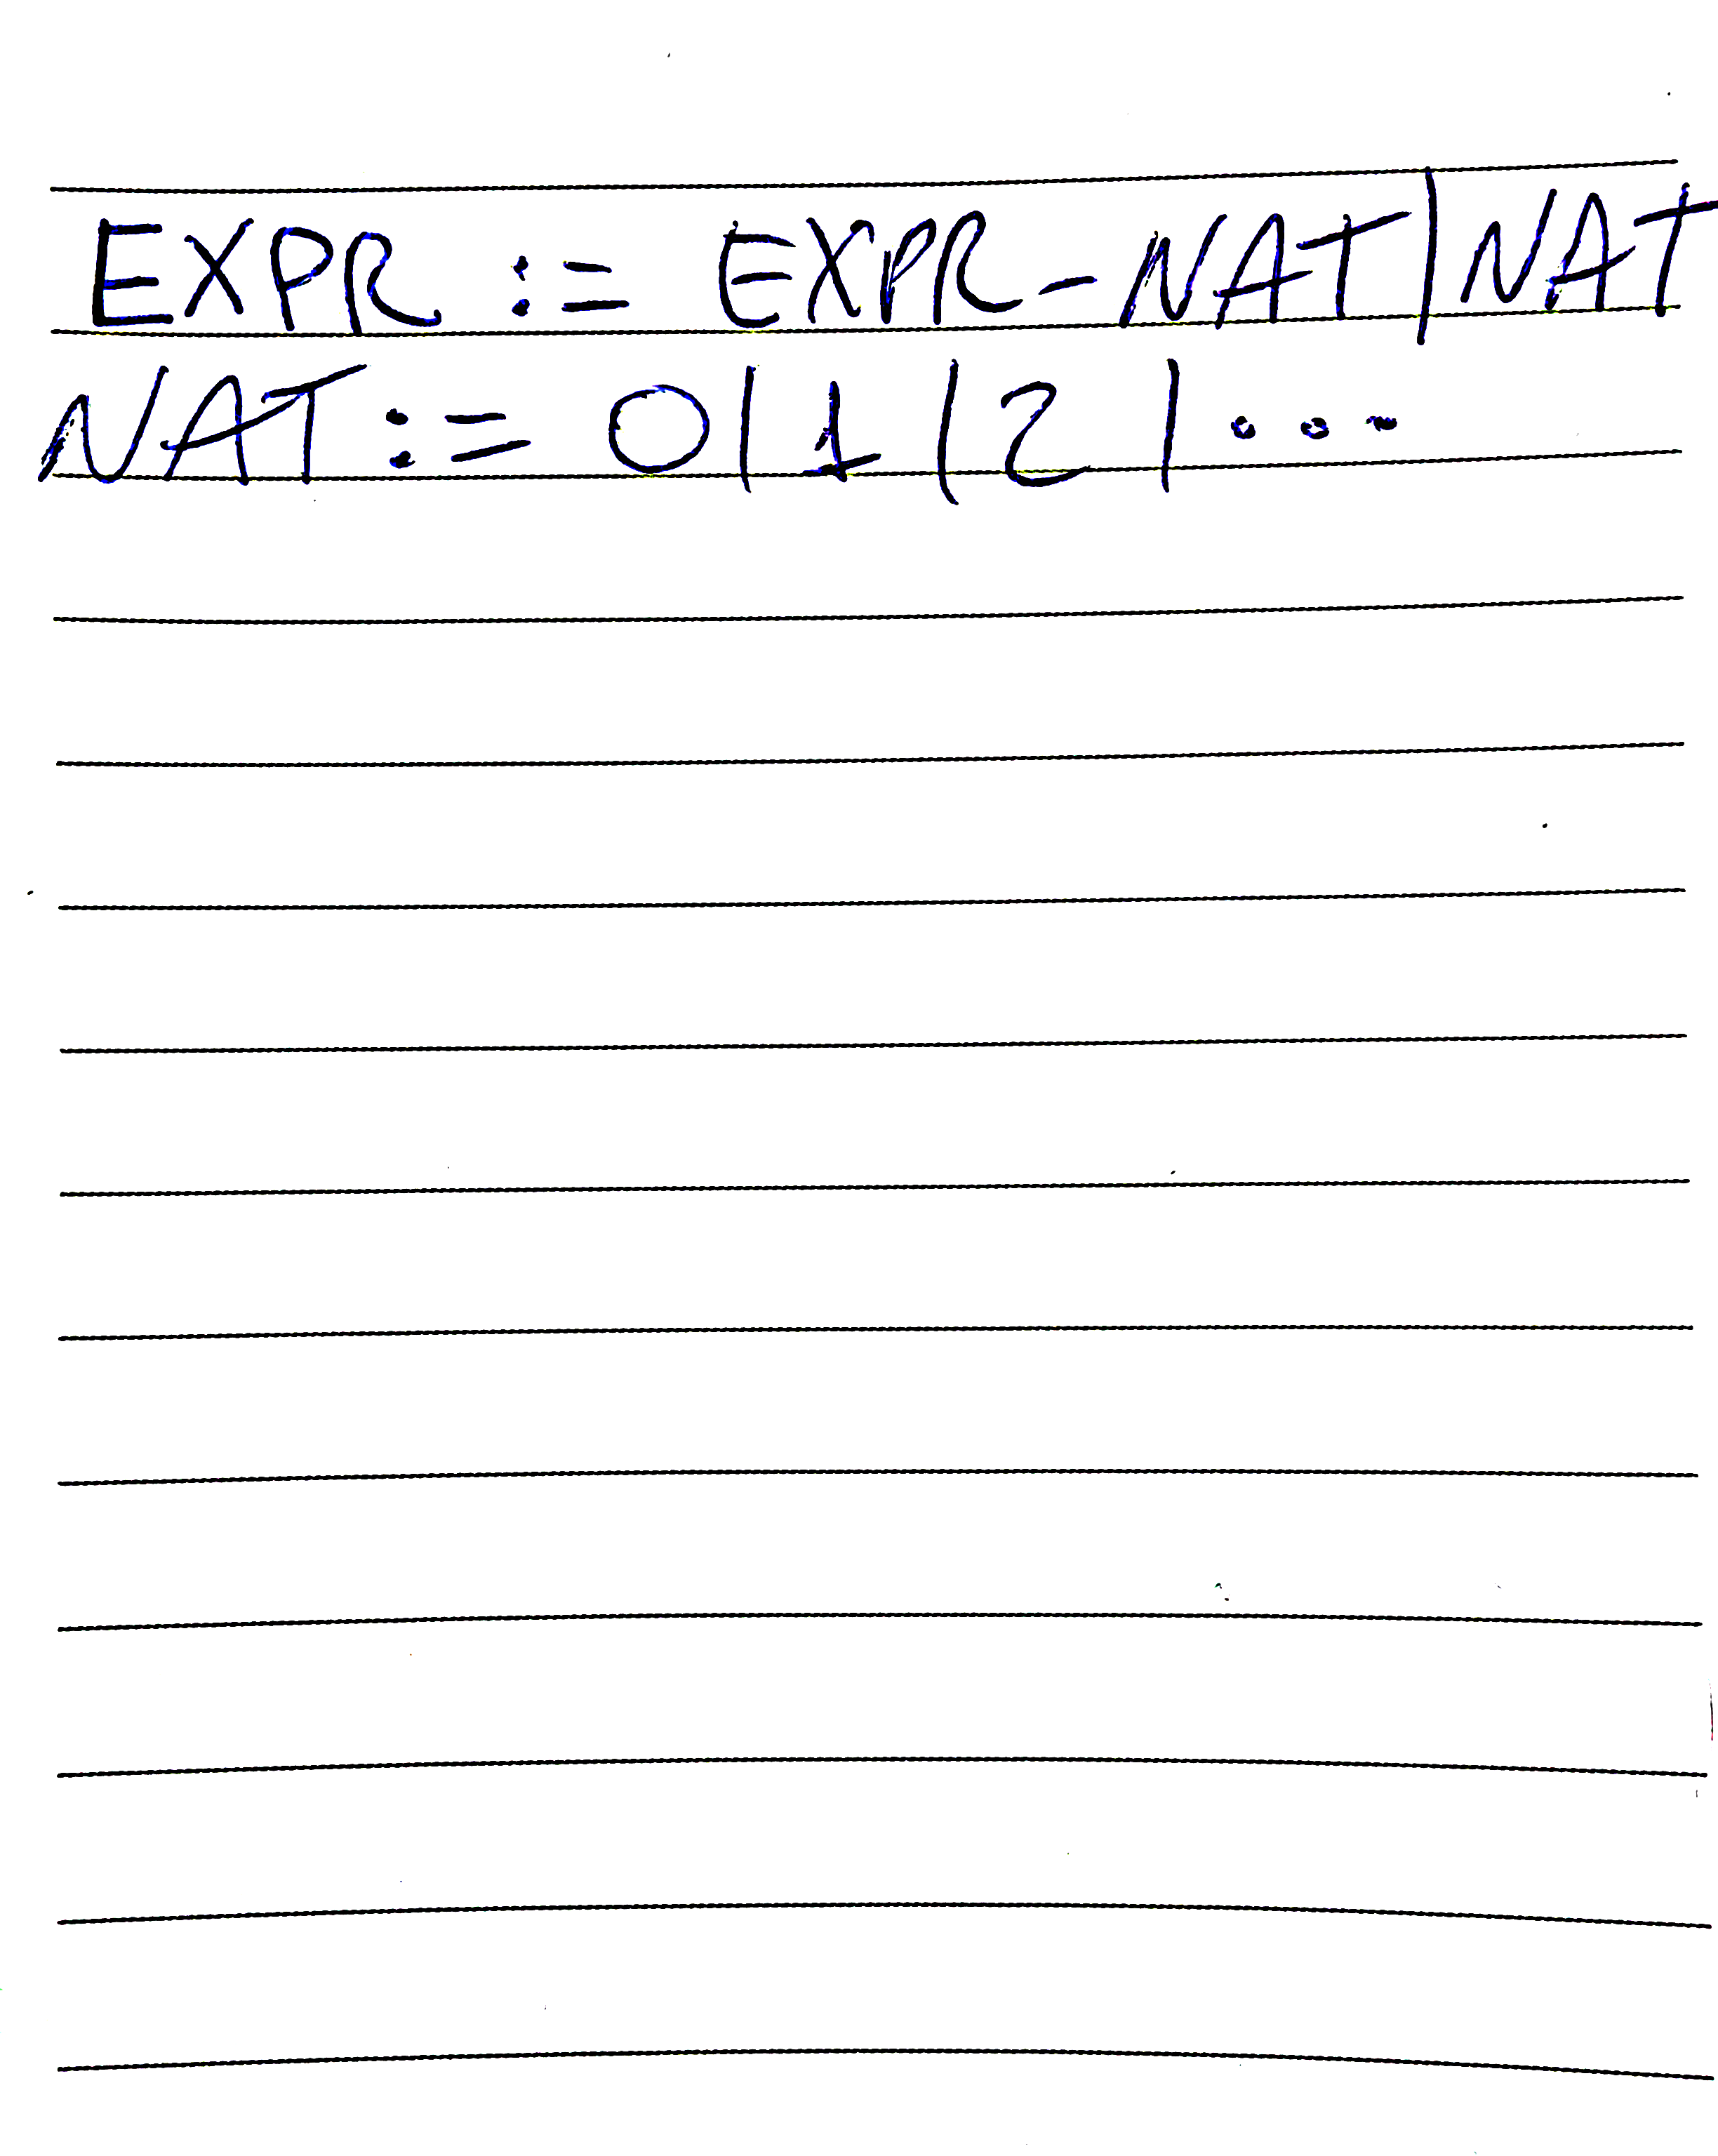 EXPR := EXPR-NAT|NAT
NAT := 0|1|2|...